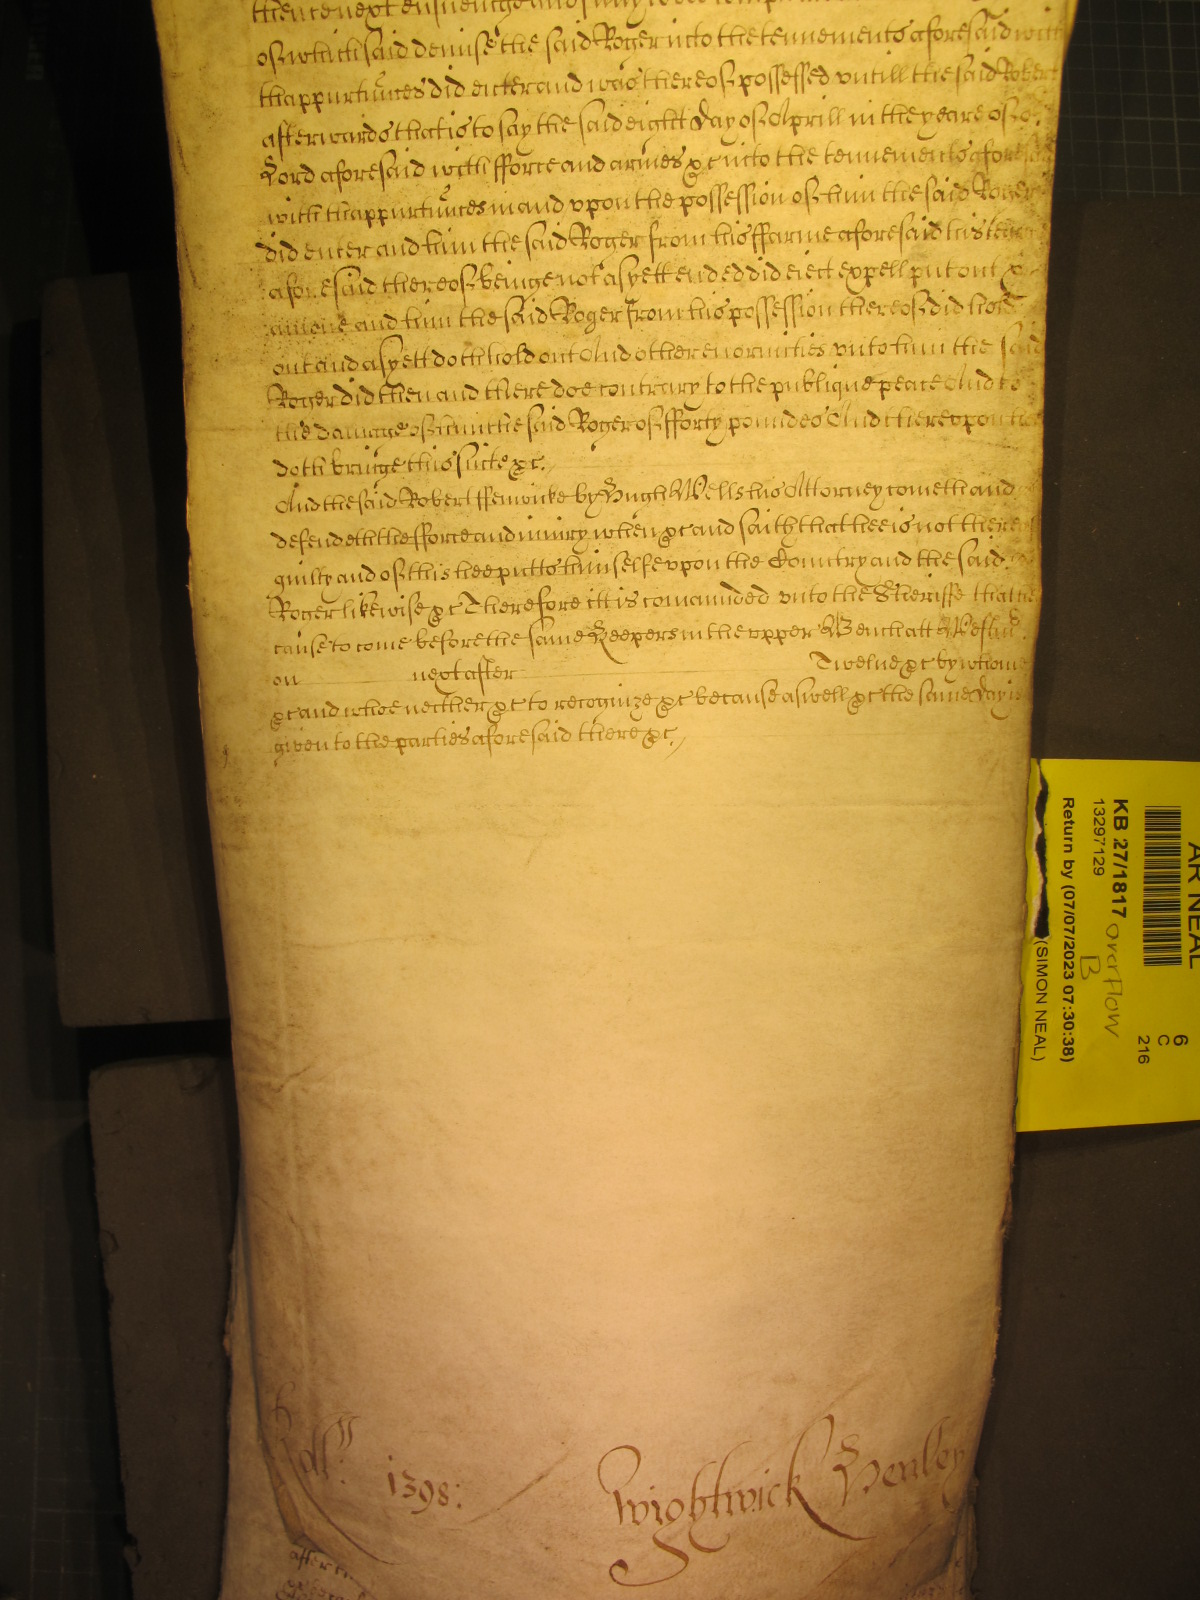 thence next ensueinge and
of which said demise the said Roger into the tennements aforesaid with
thappurtñces did enter and was thereof possessed untill the said Robert
afterwards that is to say the said eight day of Aprill in the yeare of o
Lord aforesaid with fforce and armes &c into the tennements afore
with thappurtñces in and vpon the possession of him the said Roger
did enter and him the said Roger from his ffarme aforesaid his terme
aforesaid thereof beinge not as yett ended did eiect expell put out &
amove and him the said Roger from his possession thereof did hold
out and as yett doth hold out And other enormities vnto him the said
Roger did then and there doe contrary to the publique peace And to
the damage of him the said Roger of fforty poundes And therevpon he
doth bringe this suite &c.
And the said Robert ffenwicke by Hugh Wells his Attorney cometh and
defendeth the fforce and iniury when &c and saith that hee is not thereof
guilty and of this hee putts himselfe vpon the Countrey and the said
Roger likewise &c Therefore itt is comaunded vnto the Sheriffe that he
cause to come before the same Keepers in the vpper Bench att Westm̃
on next after Twelue &c by whome
&c and whoe neither &c to recognize &c because aswell &c the same day is
given to the parties aforesaid there &c.
1398: Wightwick Henley
after
AR NEAL
6
C
216
KB 27/1817 overflow
B
13297129
Return by (07/07/2023 07:30:38)
(SIMON NEAL)